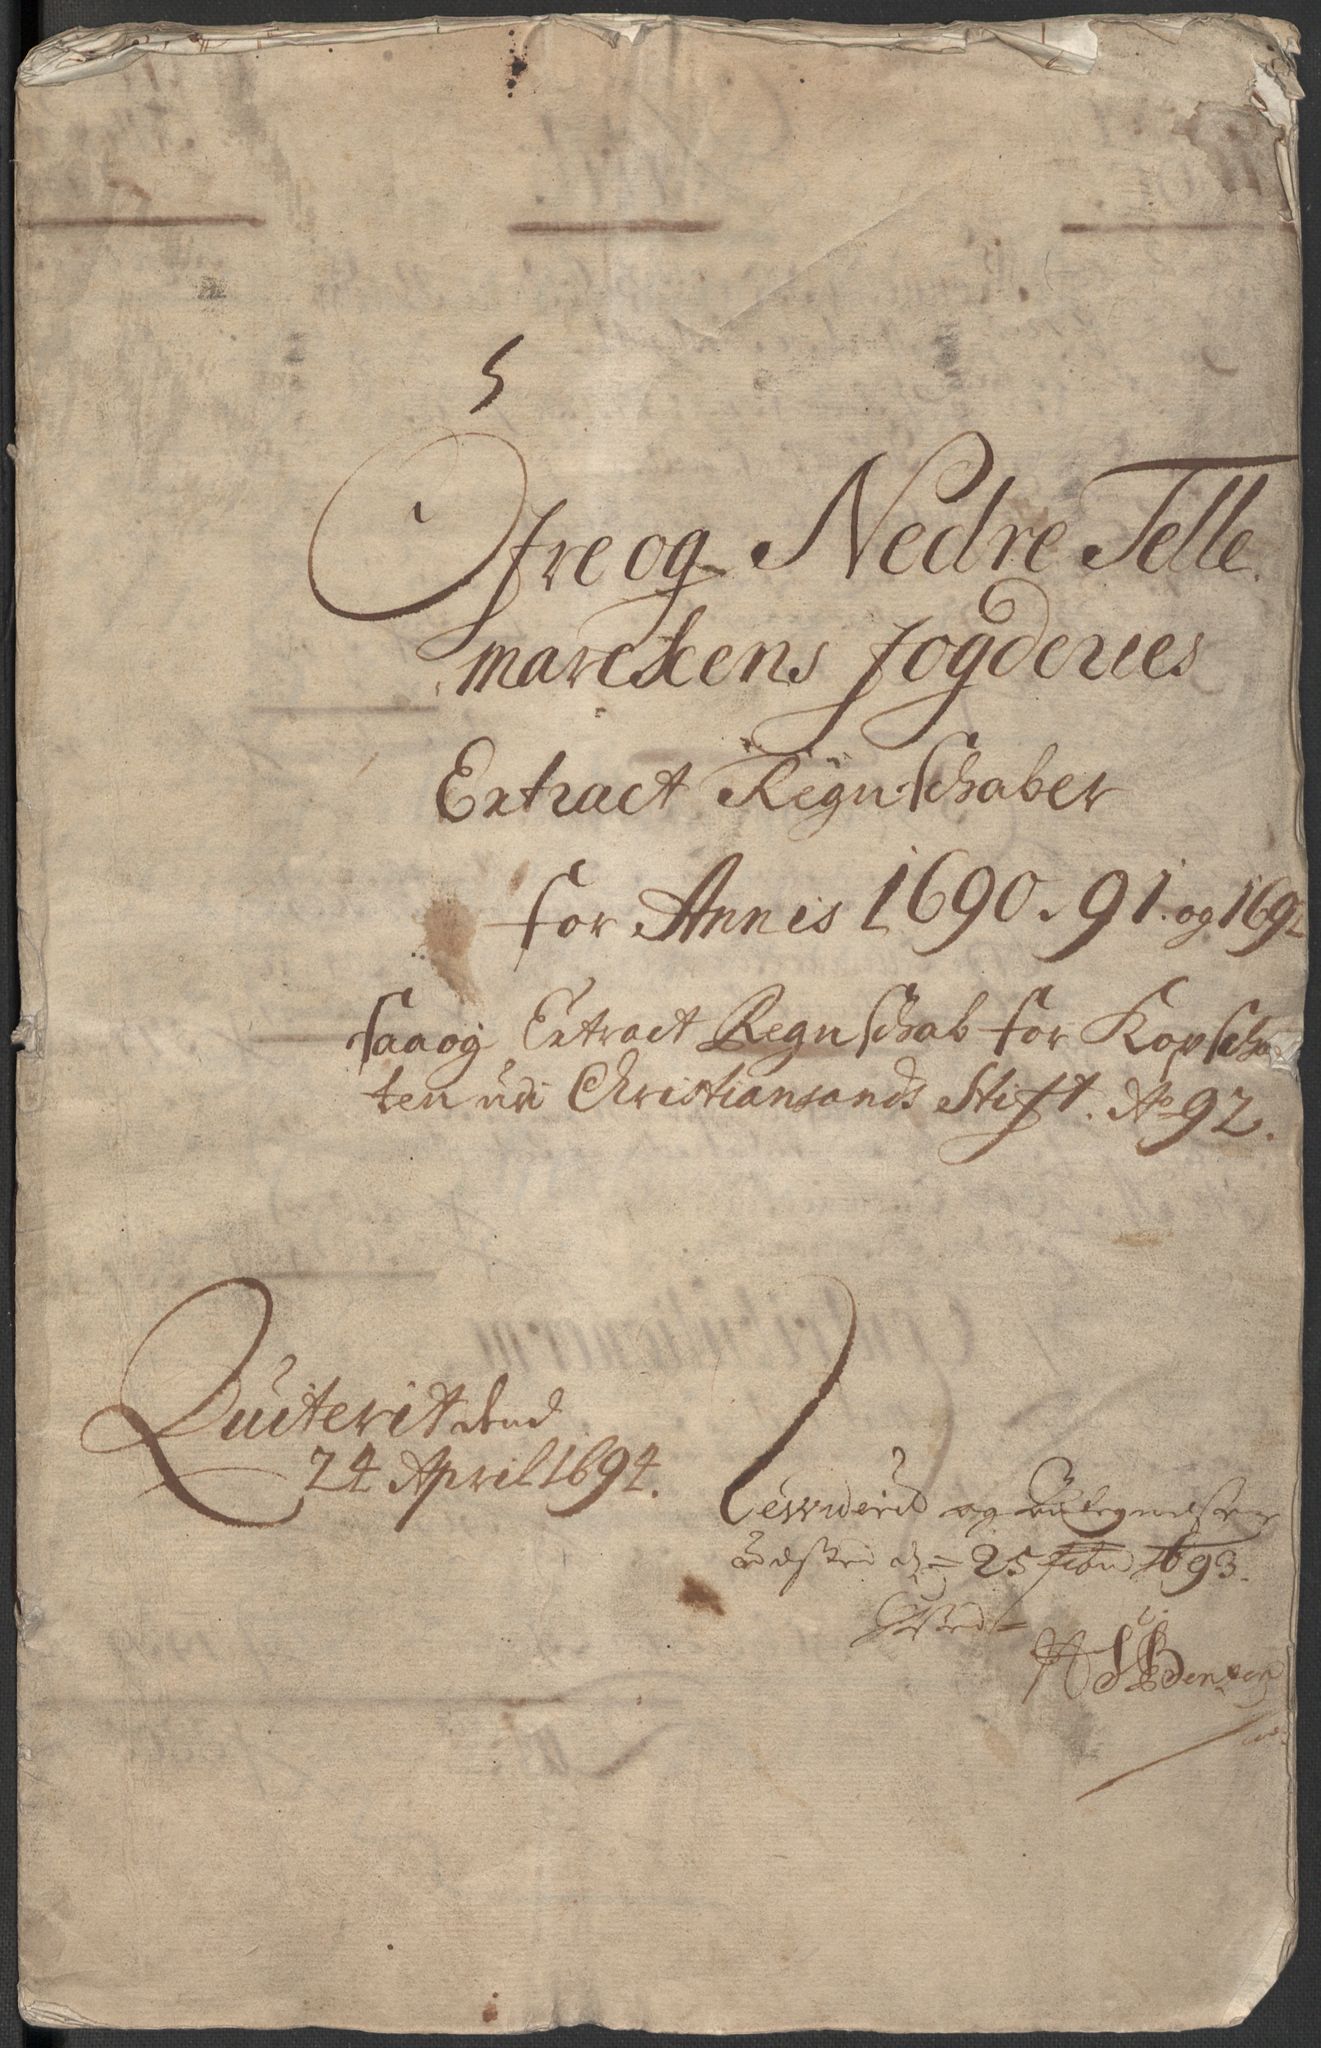 5
Øfre og Nedre Telle
marckens fogderies
Extract Regnschaber
for Annis 1690. 91. og 1692
saa og Extract Regnschab for Kopscha
ten udi Christiansands Stift. Ao 92.
Quiterit dend
24 April 1694.
Revideret og
d 25 1693.